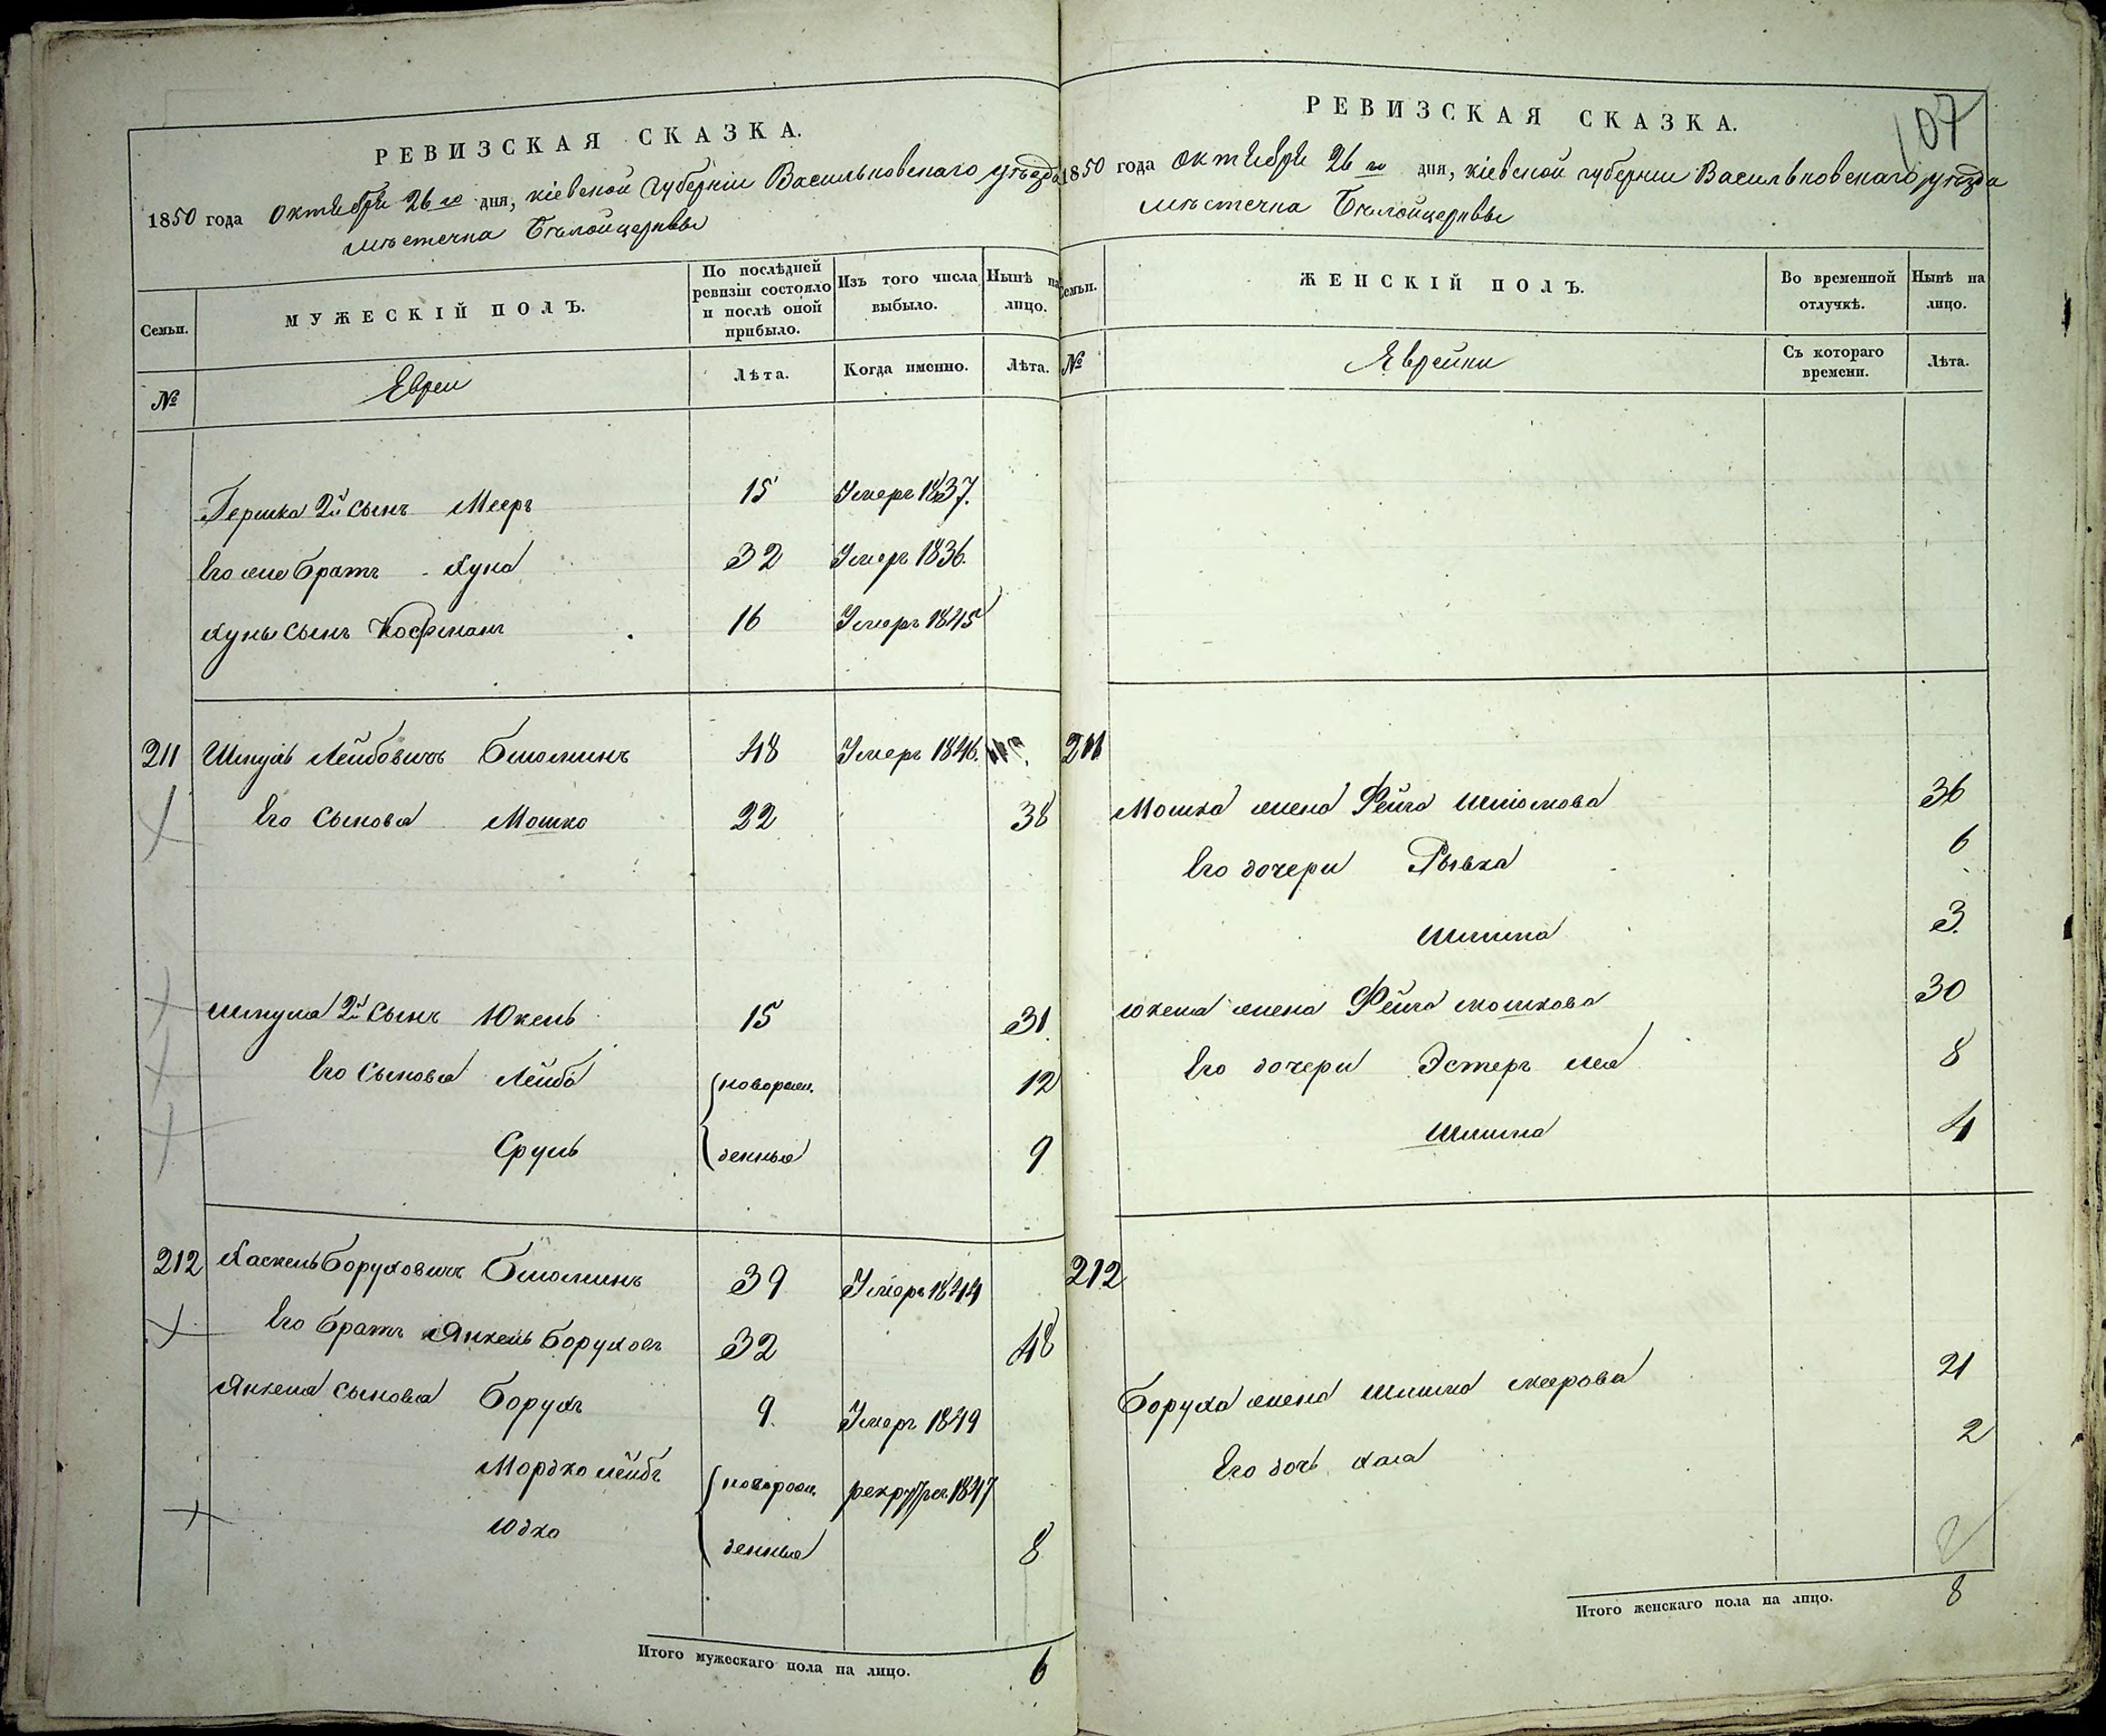 РЕВИЗСКАЯ СКАЗКА.
1850 года Октября 26го дня, кіевской губерніи Васильковскаго уѣзда
мѣстечка Бѣлойцеркви
Семьи.
МУЖЕСКІЙ ПОЛЪ.
По послѣдней ревизіи состояло и послѣ оной прибыло.
Изъ того числа выбыло.
Нынѣ на лицо.
№
Евреи
Лѣта.
Когда именно.
Лѣта.
Гершка 2й сынъ Мееръ 15 Умеръ 1837.
Его же братъ Хуна 32 Умеръ 1836.
Хуны сынъ Кофманъ 16 Умеръ 1845
211 Шмуль Лейбовичъ Блюминъ 48 Умеръ 1846.
Его сыновья Мошко 22 38
Шмуля 2й сынъ Юкель 15 31.
Его сыновья Лейба новорож. 12
Сруль денные 9
212 Хаскель Боруховичъ Блюминъ 39 Умеръ 1844
Его братъ Янкель Боруховъ 32 48
Янкеля сыновья Борухъ 9. Умеръ 1849
Мордко лейбъ новорож. рекрутъ 1847
Юдко денные 8
Итого мужескаго пола на лицо. 6
107
РЕВИЗСКАЯ СКАЗКА.
1850 года октября 26го дня, кіевской губерніи Васильковскаго уѣзда
мѣстечка Бѣлойцеркви
Семьи.
ЖЕНСКІЙ ПОЛЪ.
Во временной отлучкѣ.
Нынѣ на лицо.
№
Еврейки
Съ котораго времени.
Лѣта.
211
Мошка жена Фейга Шлiомова 36
Его дочери Рывка 6
Шлима 3.
Юкеля жена Фейга мошкова 30
Его дочери Эстеръ лея 8
Шлима 4
212
Боруха жена шлима меерова 21
Его дочь хая 2
Итого женскаго пола на лицо. 8